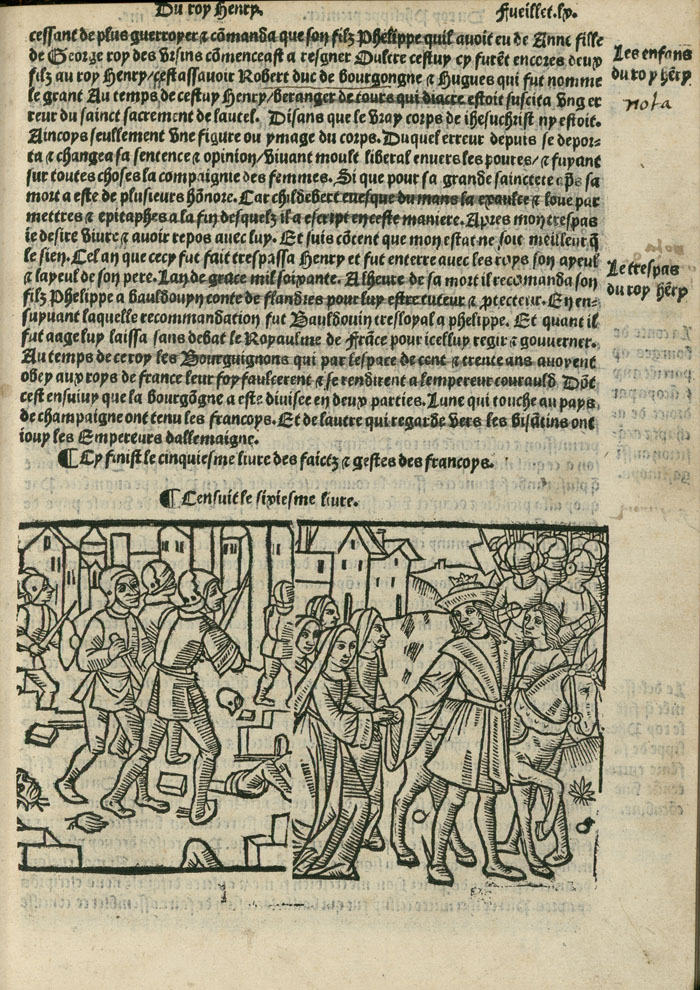 Du roy Henry. Fueillet.lx.
cessant de plus guerroyer ⁊ cõmanda que son filz Phelippe quil avoit eu de Anne fille
de George roy des Ursins cõmenceast a resgner Oultre cestuy cy furẽt encores deux
filz au roy Henry/cestassavoir Robert duc de bourgongne ⁊ Hugues qui fut nomme
le grant Au temps de cestuy Henry/beranger de tours qui diacre estoit suscita ung er
reur du sainct sacrement de lautel. Disans que le vray corps de ihesuchrist ny estoit.
Aincoys seullement une figure ou ymage du corps. Duquel erreur depuis se depor-
ta ⁊ changea sa sentence ⁊ opinion/vivant moult liberal envers les povres/⁊ fuyant
sur toutes choses la compaignie des femmes. Si que pour sa grande sainctete ap̃s sa
mort a este de plusieurs hõnore. Car childebert evesque du mans la exaulce ⁊ loue par
mettres ⁊ epitaphes a la fin desquelz il a escript en ceste maniere. Apres mon trespas
ie desire vivre ⁊ avoir repos avec luy. Et suis cõtent que mon estat ne soit meilleur q̃
le sien. Cel an que cecy fut fait trespassa Henry et fut enterre avec les roys son ayeul
⁊ layeul de son pere. Lan de grace mil soixante. A lheure de sa mort il recomanda son
filz Phelippe a bauldouyn conte de flandres pour luy estre tuteur ⁊ ptecteur. En en-
suyvant laquelle recommandation fut Bauldouin tresloyal a phelippe. Et quant il
fut aage luy laissa sans debat le Royaulme de Frãce pour icelluy regir ⁊ gouverner.
Au temps de ce roy les Bourguignons qui par lespace de cent ⁊ trente ans avoyent
obey aux roys de france leur foy faulcerent ⁊ se rendirent a lempereur courauld. Dõt
cest ensuivy que la bourgõgne a este divisee en deux parties. Lune qui touche au pays
de champaigne ont tenu les francoys. Et de lautre qui regarde vers les bisãtins ont
iouy les Empereurs dallemaigne.
¶ Cy finist le cinquiesme livre des faictz ⁊ gestes des francoys.
¶ Censuit le sixiesme livre.
Les enfans
du roy hẽry
nota
Le trespas
du roy hẽry